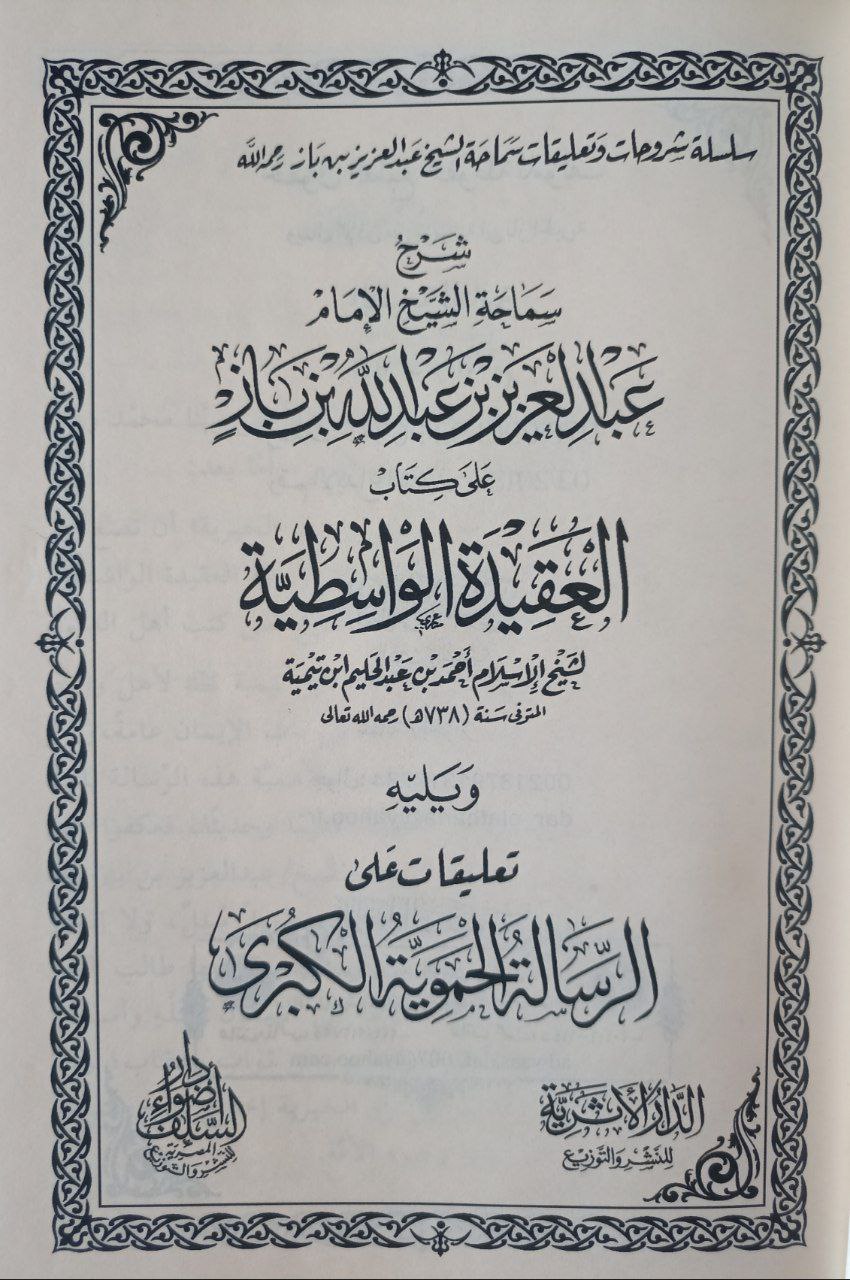 سلسلة شروحات وتعليقات سماحة الشيخ عبد العزيز بن باز رحمه الله
شَرْحُ
سَمَاحَةِ الشَّيْخِ الإِمَامِ
عَبْدِ الْعَزِيزِ بْنِ عَبْدِ اللَّهِ بْنِ بَازٍ
عَلَى كِتَابِ
الْعَقِيدَةِ الْوَاسِطِيَّةِ
لشيخ الإسلام أحمد بن عبد الحليم ابن تيمية
المتوفى سنة (٧٣٨هـ) رحمه الله تعالى
وَيَلِيهِ
تعليقات على
الرِّسَالَةِ الحَمَوِيَّةِ الكُبْرَى
الدَّارُ الأَثَرِيَّةِ
للنَّشْرِ وَالتَّوْزِيعِ
دار أضواء السلف
المصرية
للنشر والتوزيع